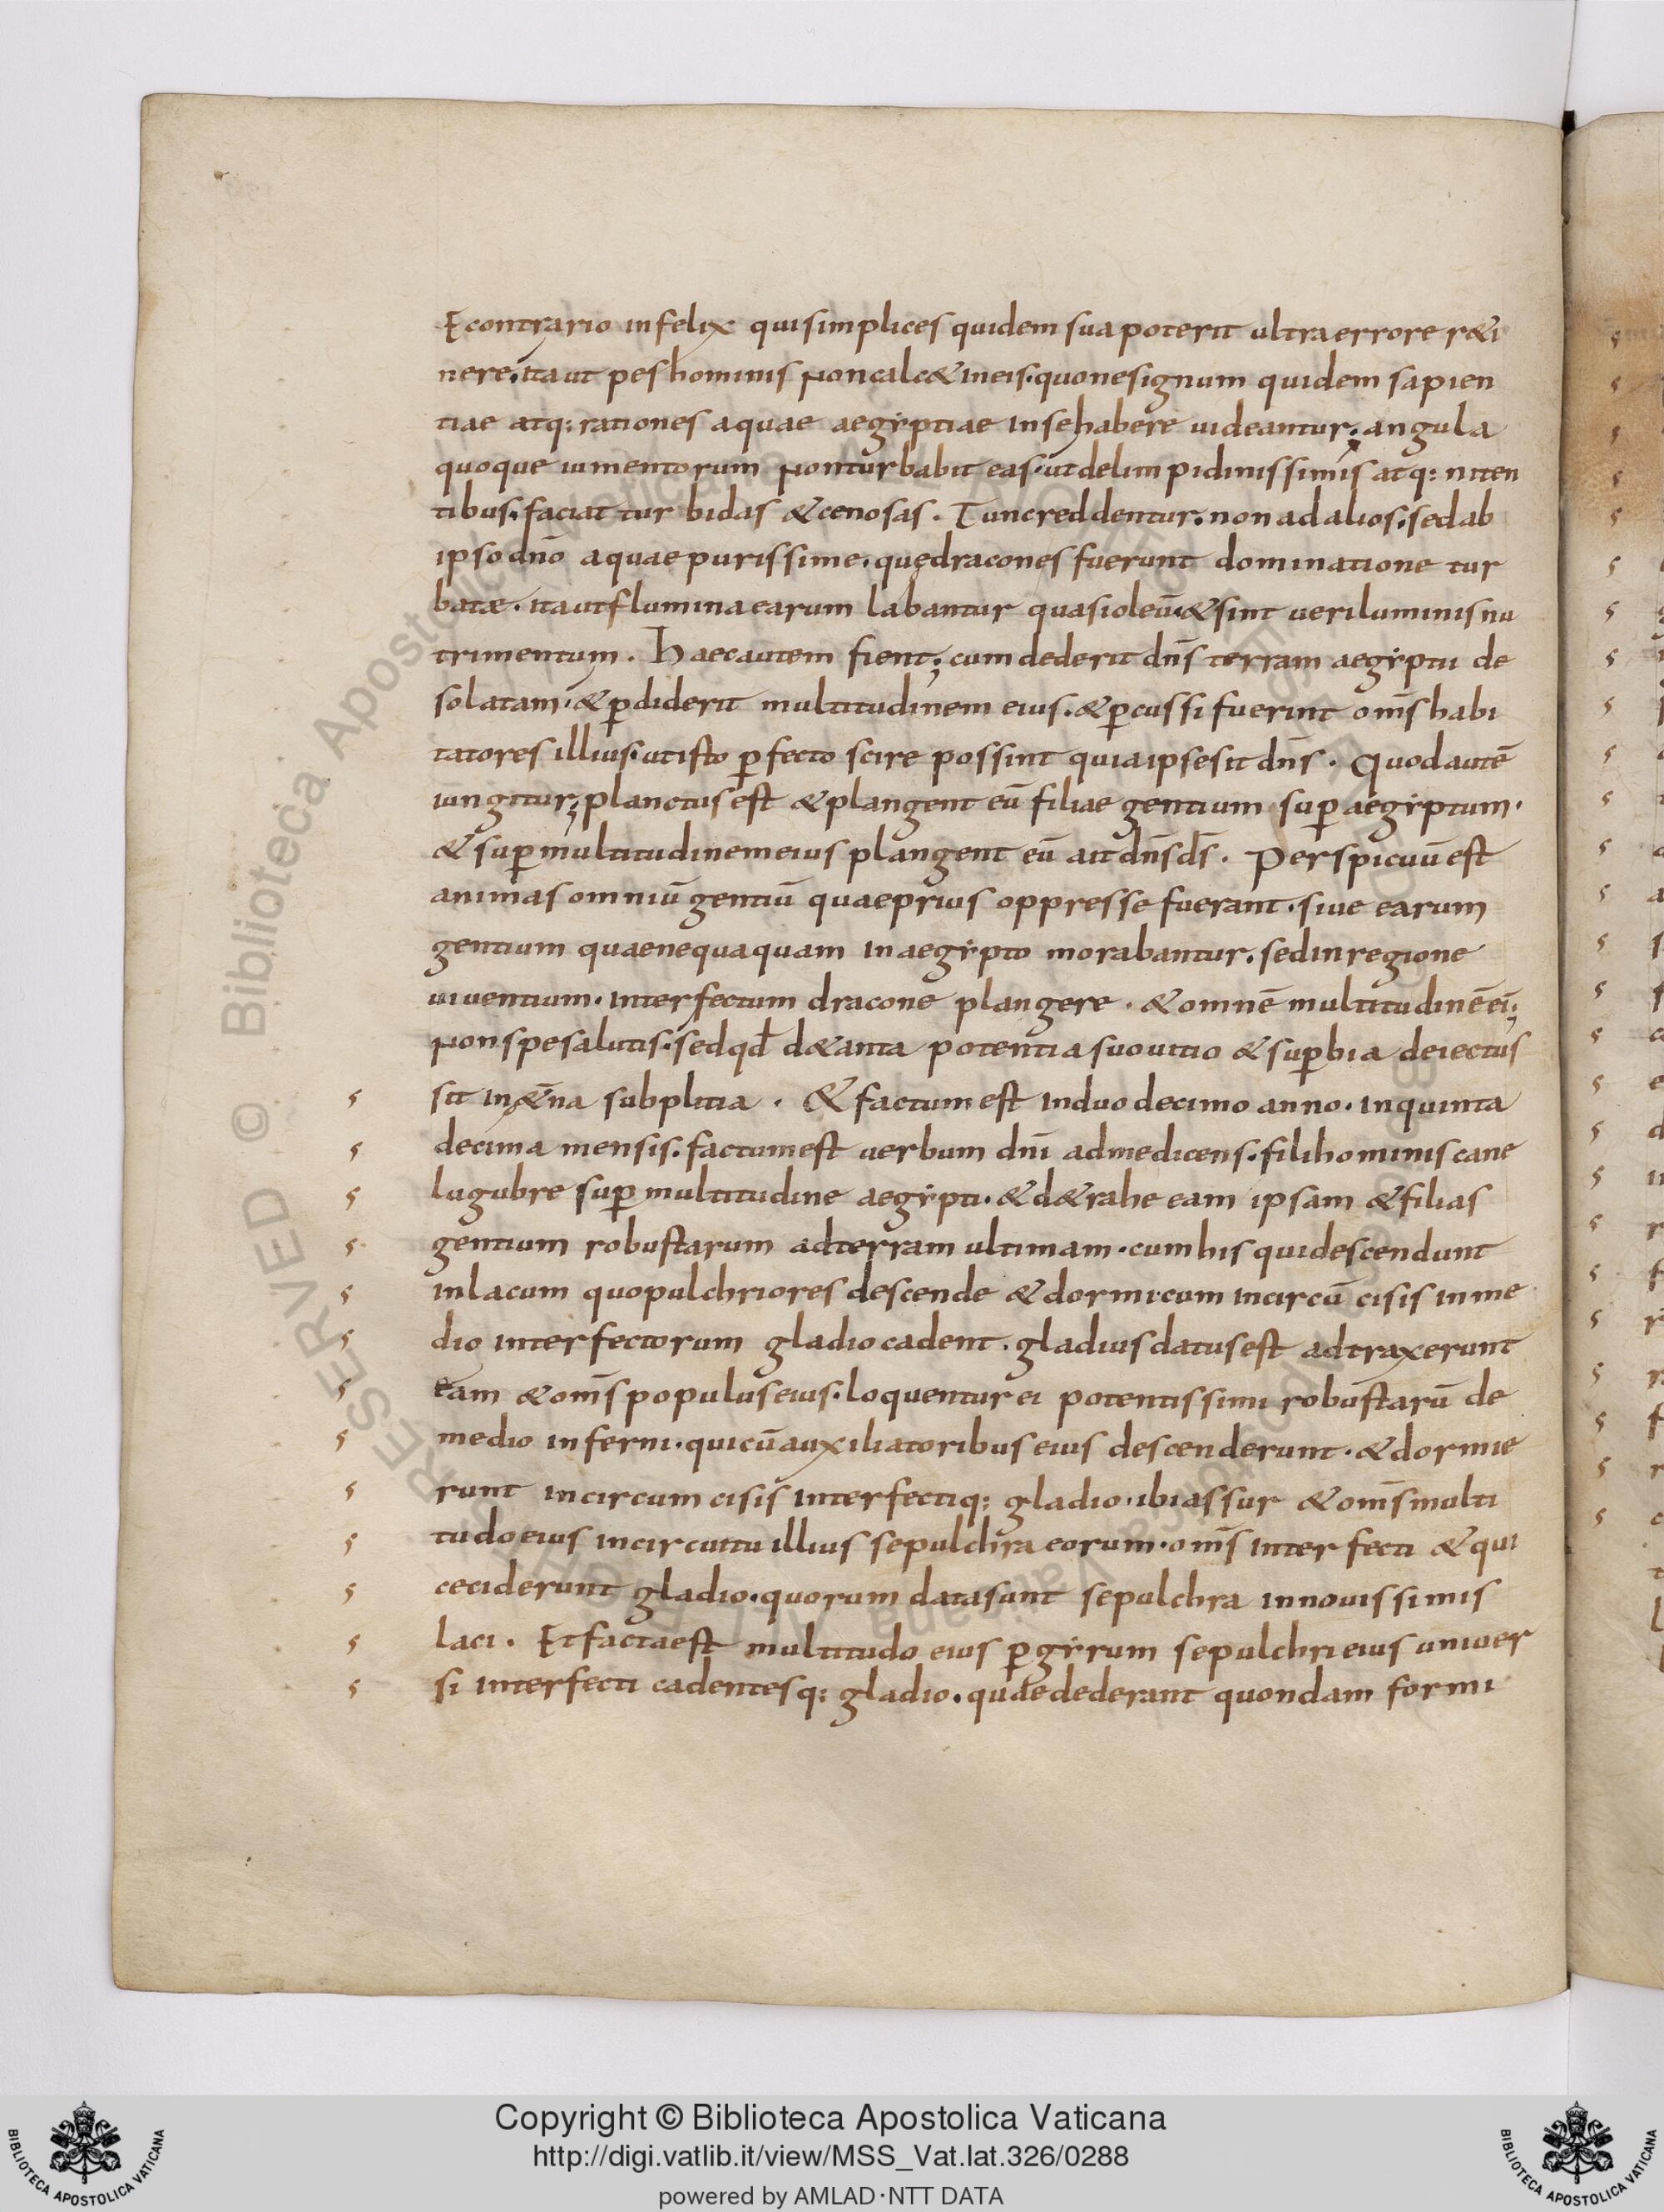 Econtrario infelix qui simplices quidem sua poterit ultra errore r&i
nere. ita ut pes hominis non calc& in eis. quo ne signum quidem sapien
tiae atq: rationes aquae aegyptiae in se habere uideantur. angula
quoque iumentorum non turbabit eas. ut de limpidinissimis atq: niten
tibus. faciat turbidas & cenosas. Tunc reddentur. non ad alios. sed ab
ipso dño aquae purissime. quę dracones fuerunt dominatione tur
batæ. ita ut flumina earum labantur quasi oleū. & sint ueri luminis nu
trimentum. Haec autem fient; cum dederit dñs terram aegypti de
solatam. & p̱diderit multitudinem eius. & p̱cussi fuerint om̄s habi
tatores illius. ut isto p̱fecto scire possint quia ipse sit dñs. Quod autē
iungitur; planctus est & plangent eū filiae gentium sup̱ aegyptum.
& sup̱ multitudinem eius plangent eū ait dñs ds̄. Perspicuū est
animas omniū gentiū quae prius oppresse fuerant. siue earum
gentium quae nequaquam in aegypto morabantur. sed in regione
uiuentium. interfectum dracone plangere. & omnē multitudinē ei;
non spe salutis. sed qd̄ d& anta potentia suo uitio & sup̱bia deiectus
s sit in &̄na subplitia. & factum est in duodecimo anno. in quinta
s decima mensis. factum est uerbum dñi ad me dicens. fili hominis cane
s lugubre sup̱ multitudine aegypti. & d&rahe eam ipsam & filias
s gentium robustarum ad terram ultimam. cum his qui descendunt
s in lacum quo pulchriores descende & dormi. cum incircū cisis in me
s dio interfectorum gladio cadent. gladius datus est adtraxerunt
s eam & om̄s populus eius. loquentur ei potentissimi robustarū de
s medio inferni. qui cū auxiliatoribus eius descenderunt. & dormie
s runt incircumcisis interfectiq: gladio. ibi assur & om̄s multi
s tudo eius in circuitu illius sepulchra eorum. om̄s interfecti & qui
s ceciderunt gladio. quorum data sunt sepulchra in nouissimis
s laci. Et facta est multitudo eius p̱ gyrum sepulchri eius uniuer
s si interfecti cadentesq: gladio. quae dederant quondam formi
© Biblioteca Apostolica Vaticana
BIBLIOTECA APOSTOLICA VATICANA
Copyright © Biblioteca Apostolica Vaticana
http://digi.vatlib.it/view/MSS_Vat.lat.326/0288
powered by AMLAD·NTT DATA
BIBLIOTECA APOSTOLICA VATICANA